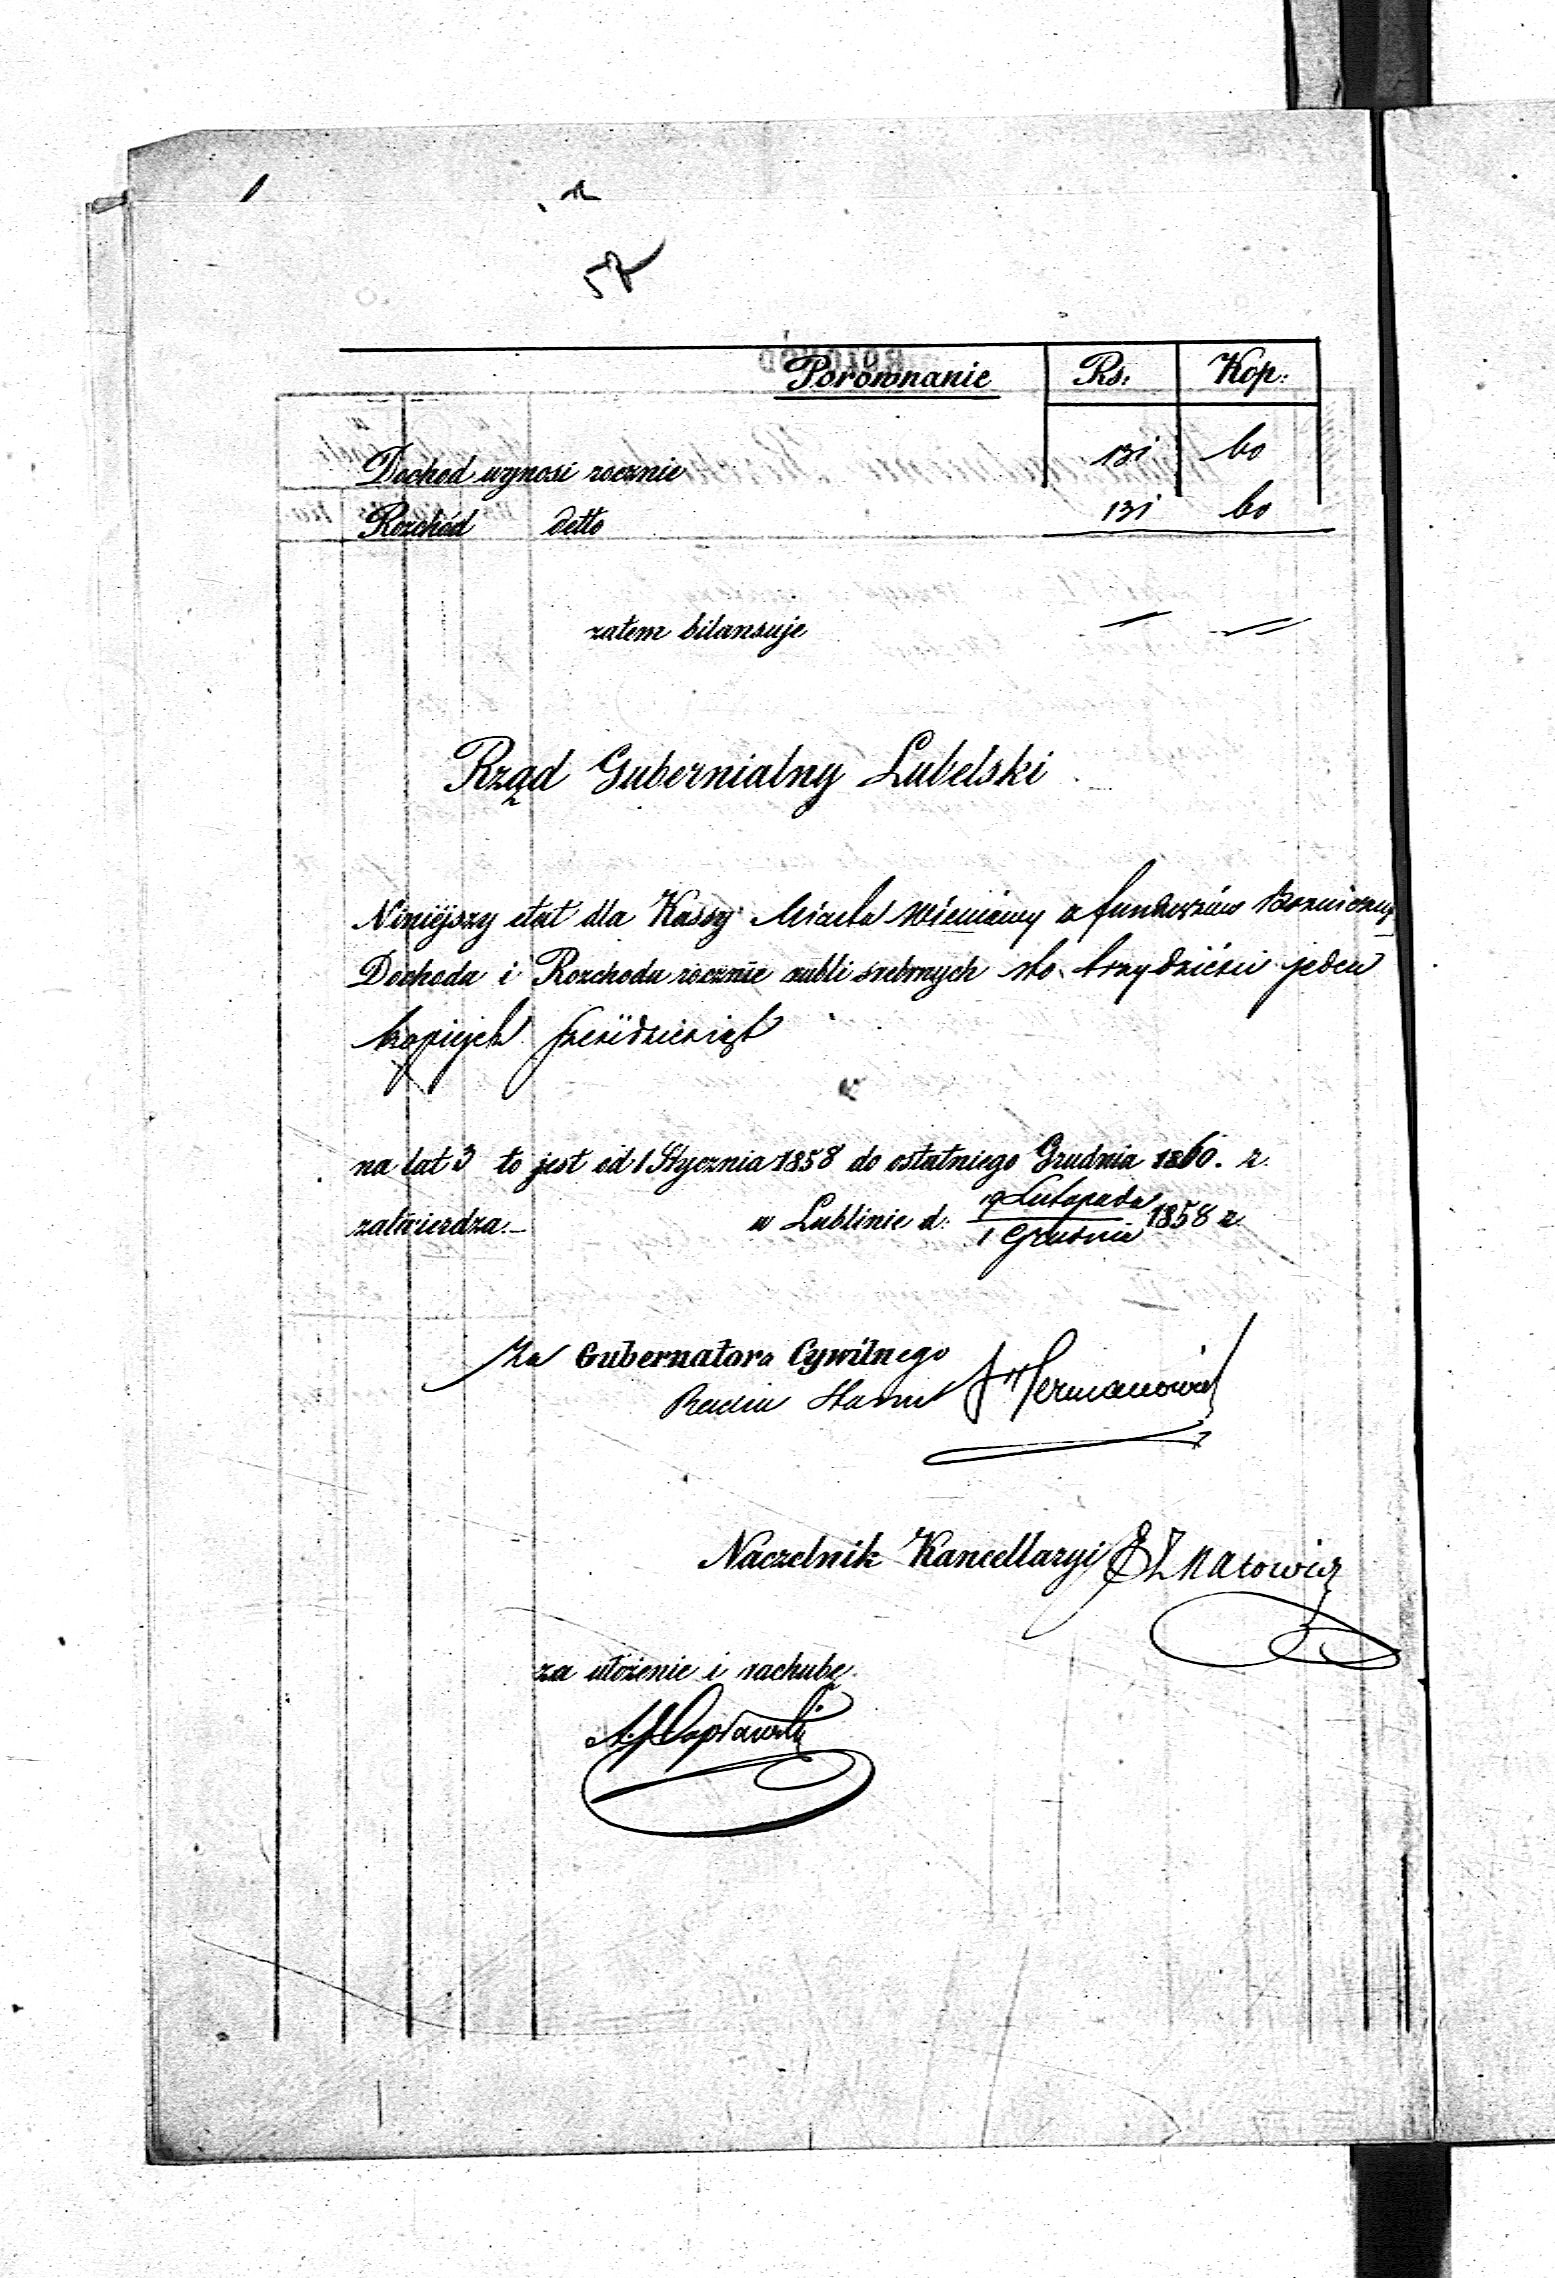 57
Porównanie Rs. Kop:
Dochód wynosi rocznie 131 60
Rozchód detto 131 60
zatem bilansuje
Rząd Gubernialny Lubelski
Niniéjszy etat dla Kassy Miasta Wieniawy z funduszów
Dochodu i Rozchodu rocznie rubli srebrnych sto trzydzieści jeden
kopiejek sześćdziesiąt
na lat 3 to jest od 1 Stycznia 1858 do ostatniego Grudnia 1860. r.
zatwierdza.— w Lublinie d. 19 Listopada / 1 Grudnia 1858 r.
Za Gubernatora Cywilnego
Radca Stanu Hermanowicz
Naczelnik Kancellaryi
za ułożenie i rachubę